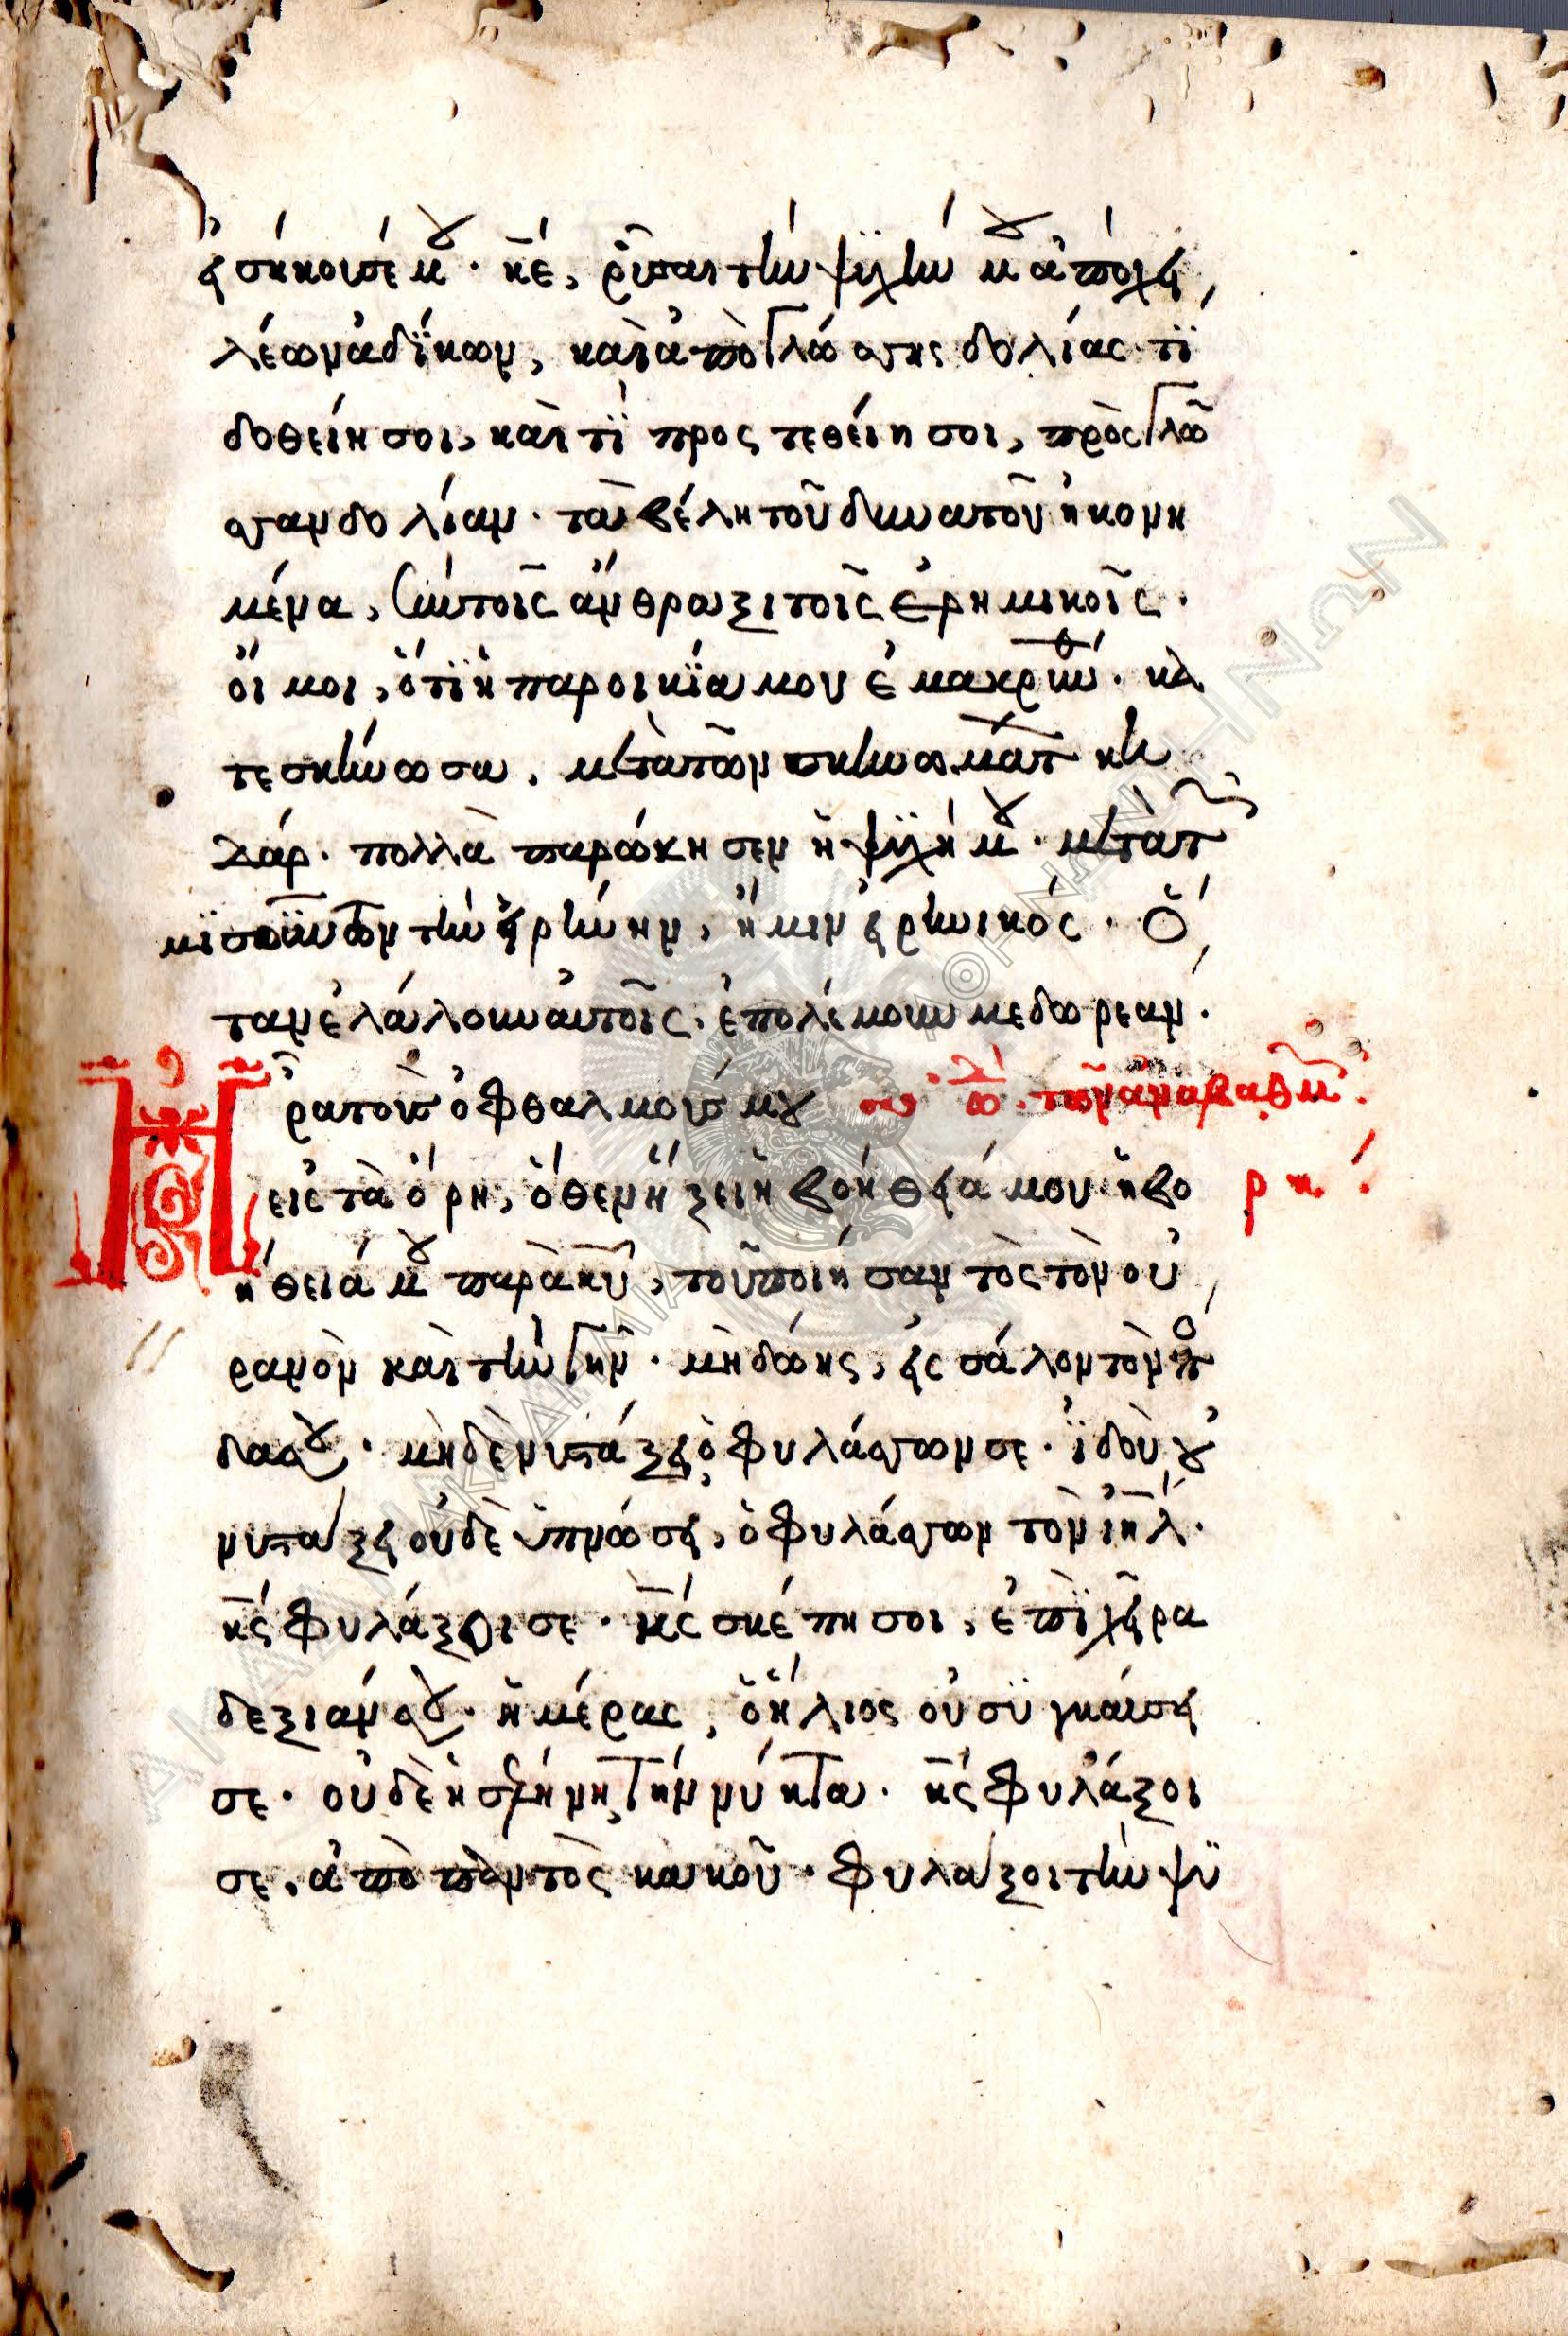 εἰσήκουσέ μου. κ̅ε̅, ῥῦσαι τὴν ψυχήν μου ἀπὸ χει
λέων ἀδΐκων, καὶ ἀπὸ γλώσσης δολίας. τΐ
δοθείη σοι, καὶ τΐ προςτεθείη σοι, πρὸς γλῶ
σσαν δολίαν. τὰ βέλη τοῦ δυνατοῦ ἠκονη
μένα, σὺν τοῖς ἄνθραξι τοῖς ἐρημικοῖς.
οἴ μοι, ὅτϊ ἡ παροικΐα μου ἐμακρύνθη. κα
τεσκήνωσα, μετὰ τῶν σκηνωμάτ κη
δάρ. πολλὰ παρώκησεν ἡ ψυχή μου. μετὰ τ
μϊσούντων τὴν εἰρήνην, ἤμην εἰρηνικός. Ὅ
ταν ἐλάλουν αὐτοῖς, ἐπολέμουν με δωρεαν.
Ἦρα τοὺς ὀφθαλμούς μου ᾠ δ. τῶν ἀναβαθμ.
εἰς τὰ ὄρη, ὅθεν ἥξει ἡ βοήθειά μου. ἡ βο ρκ.
ήθειά μου παρὰ κ̅υ̅, τοῦ ποιήσαντὸς τὸν οὐ
ρανὸν καὶ τὴν γῆν. μὴ δώης, εἰς σάλον τὸν πό
δα σου. μὴ δὲ νυστάξει ὁ φυλάσσων σε. ἰδοὺ οὐ
νυστάξει οὐδὲ ὑπνώσει, ὁ φυλάσσων τὸν ι̅η̅λ.
κ̅ς̅ φυλάξει σε. κ̅ς̅ σκέπη σοι, ἐπὶ χεῖρα
δεξιάν σου. ἡμέρας, ὁ ἥλιος οὐ συγκαύσει
σε. οὐδὲ ἡ σελήνη τὴν νύκτα. κ̅ς̅ φυλάξοι
σε, ἀπὸ παντὸς κακοῦ. φυλάξοι τὴν ψϋ